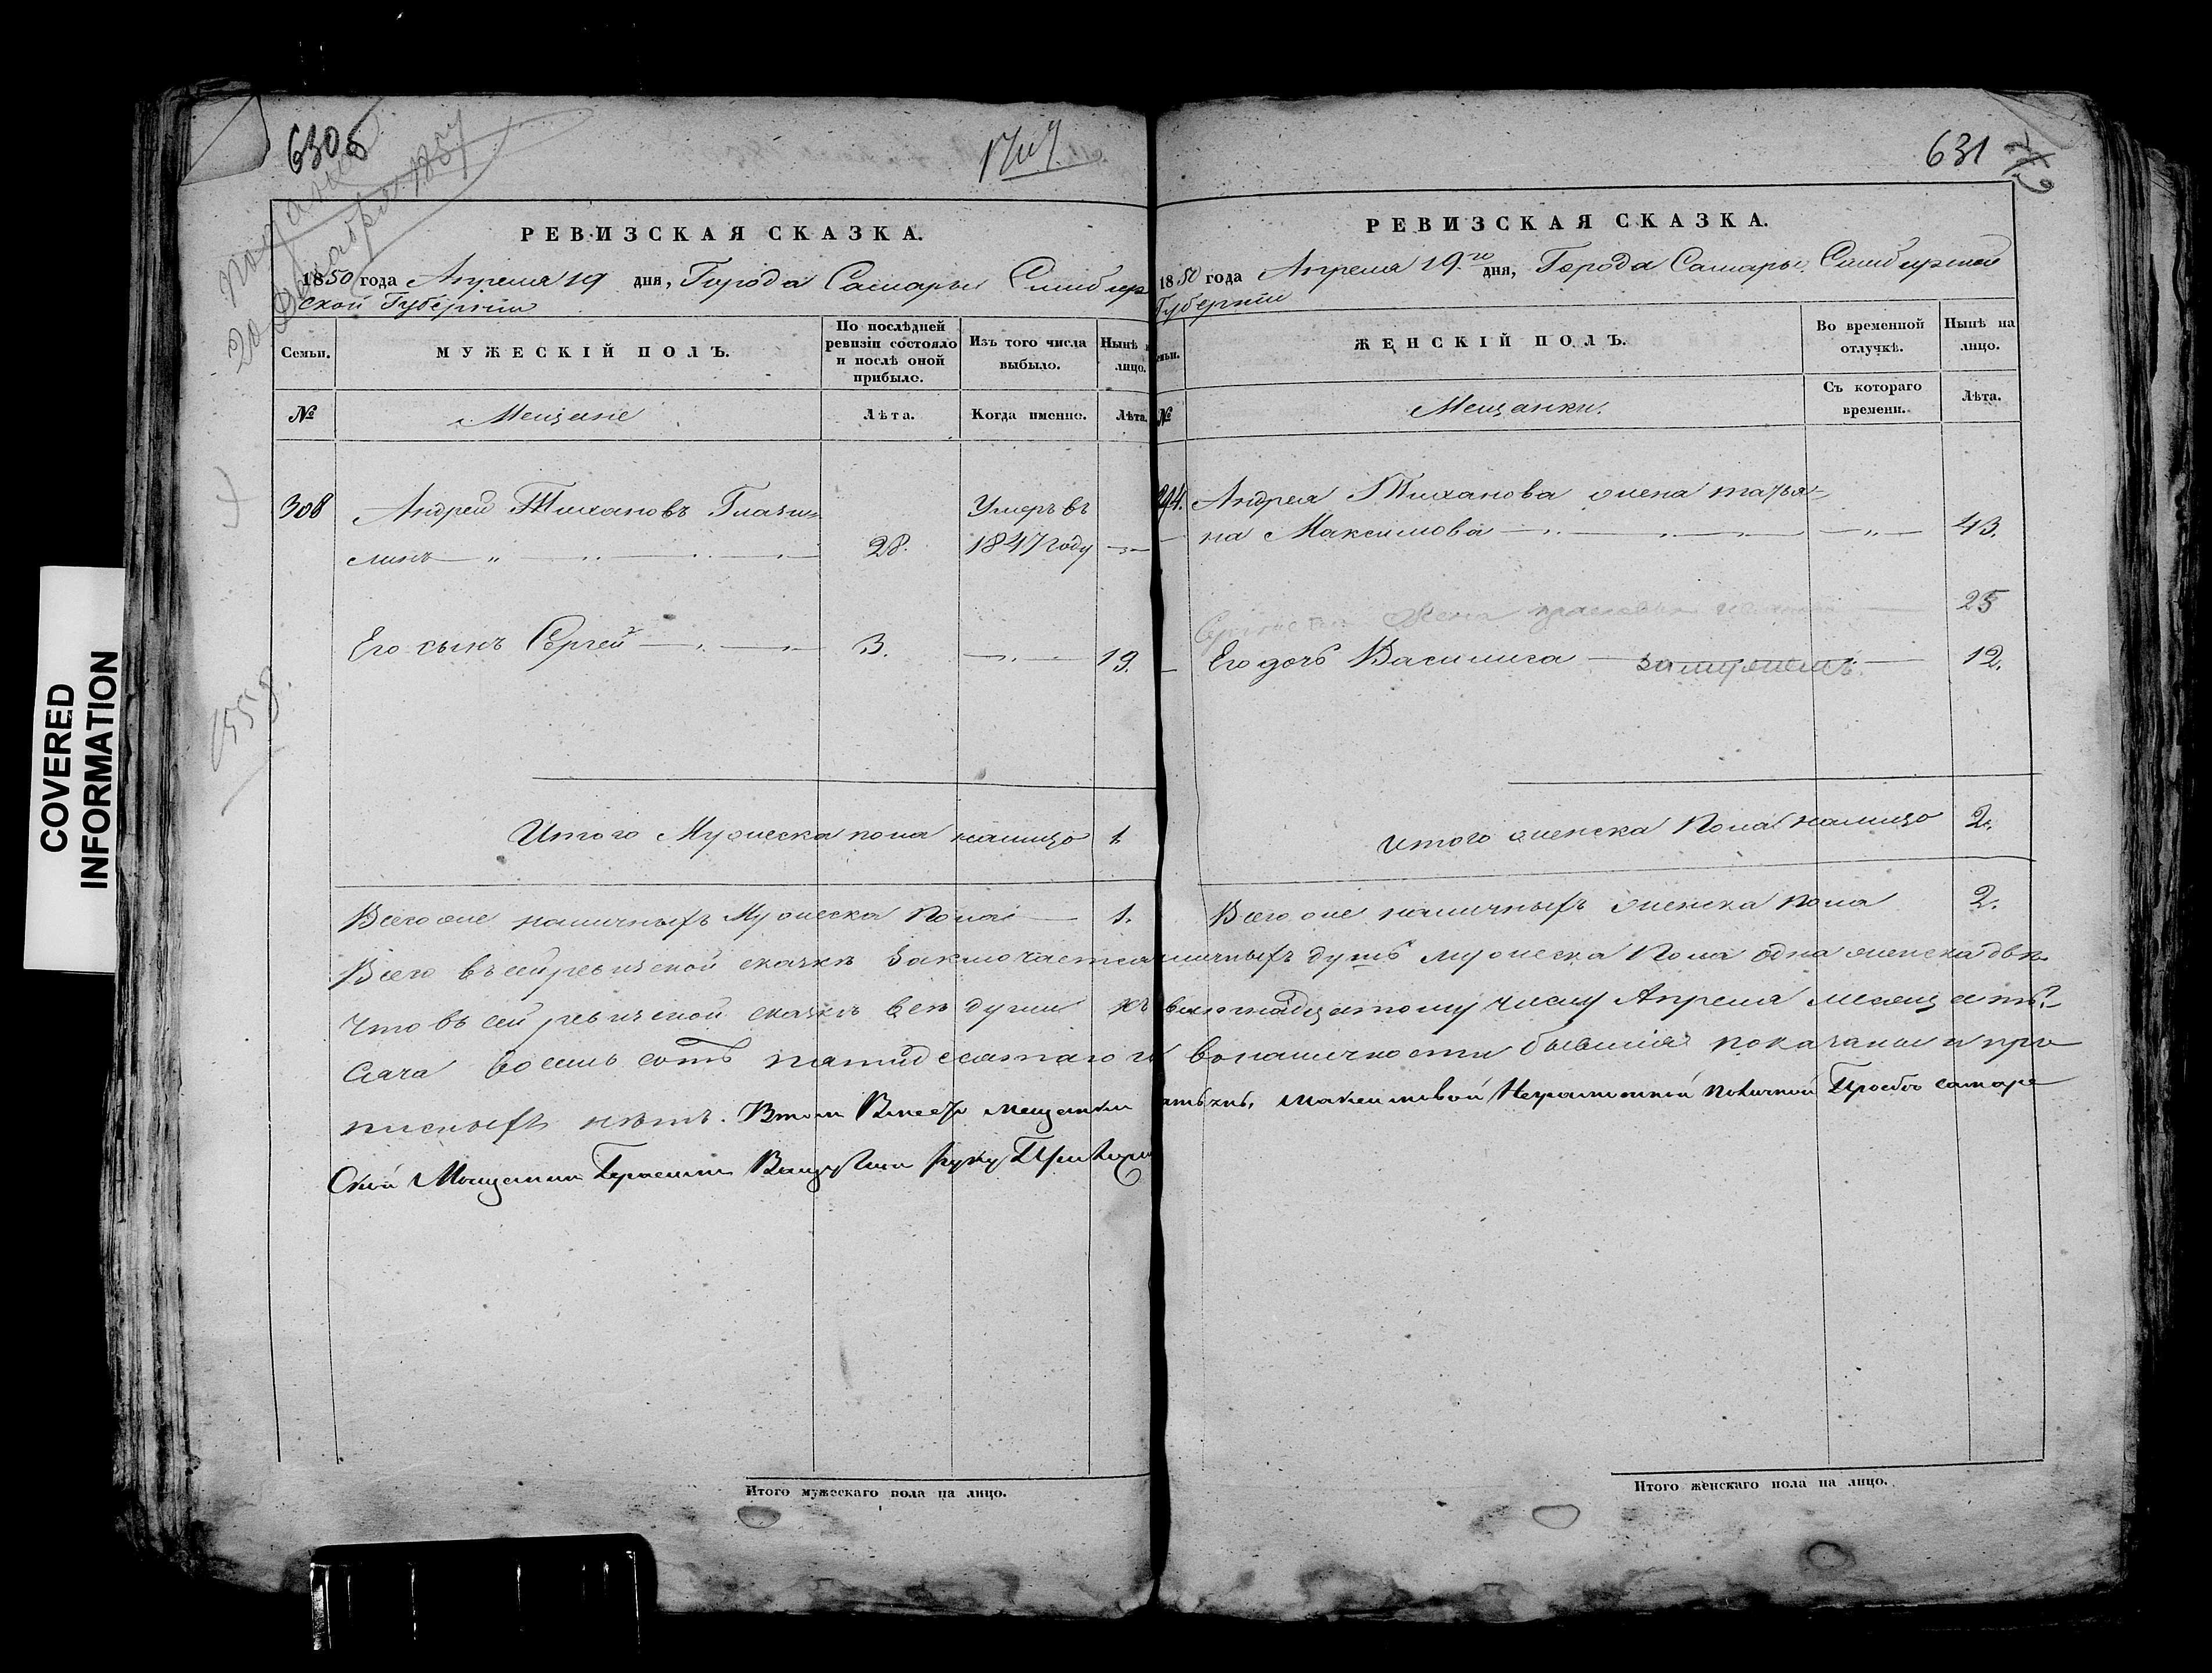 630б
631
подана
20 декабря 1857
РЕВИЗСКАЯ СКАЗКА.
1850 года Апреля 19 дня, Города Самары Симбир
ской Губернии
Семьи.
МУЖЕСКІЙ ПОЛЪ.
По послѣдней ревизіи состояло и послѣ оной прибыло.
Изъ того числа выбыло.
Нынѣ на лицо.
№
Мещане
Лѣта.
Когда именно.
Лѣта.
308 Андрей Тихановъ Глазу=
линъ 28. Умеръ въ 1847 году
Его сынъ Сергей 3. 19.
Итого Мужеска пола налицо 1.
Всего же наличныхъ Мужеска Пола 1.
РЕВИЗСКАЯ СКАЗКА.
1850 года Апреля 19го дня, Города Самары Симбирской
Губернии
ЖЕНСКІЙ ПОЛЪ.
Во временной отлучкѣ.
Нынѣ на лицо.
№
Мещанки.
Съ котораго времени.
Лѣта.
Андрея Тиханова жена татья=
на Максимова 43.
жена 25
Его дочь Василиса замужемъ. 12.
Итого женска Пола налицо 2.
Всего же наличныхъ женска пола 2.
Всего въ сей ревизской сказкѣ заключается наличныхъ душъ мужеска Пола одна женска двѣ
что въ сей ревизской сказкѣ все души къ девятнадцатому числу Апреля месяца ты=
сяча восемь сотъ пятидесятаго г. вналичности бывшия показаны и про
писныхъ нѣтъ. Втом Вместо мещанки Татьяны Максимовой Неграмотной поличной Прозбе самарс
Ской Мещанин Герасим руку Приложил
558.
COVERED
INFORMATION
Итого мужескаго пола на лицо.
Итого женскаго пола на лицо.